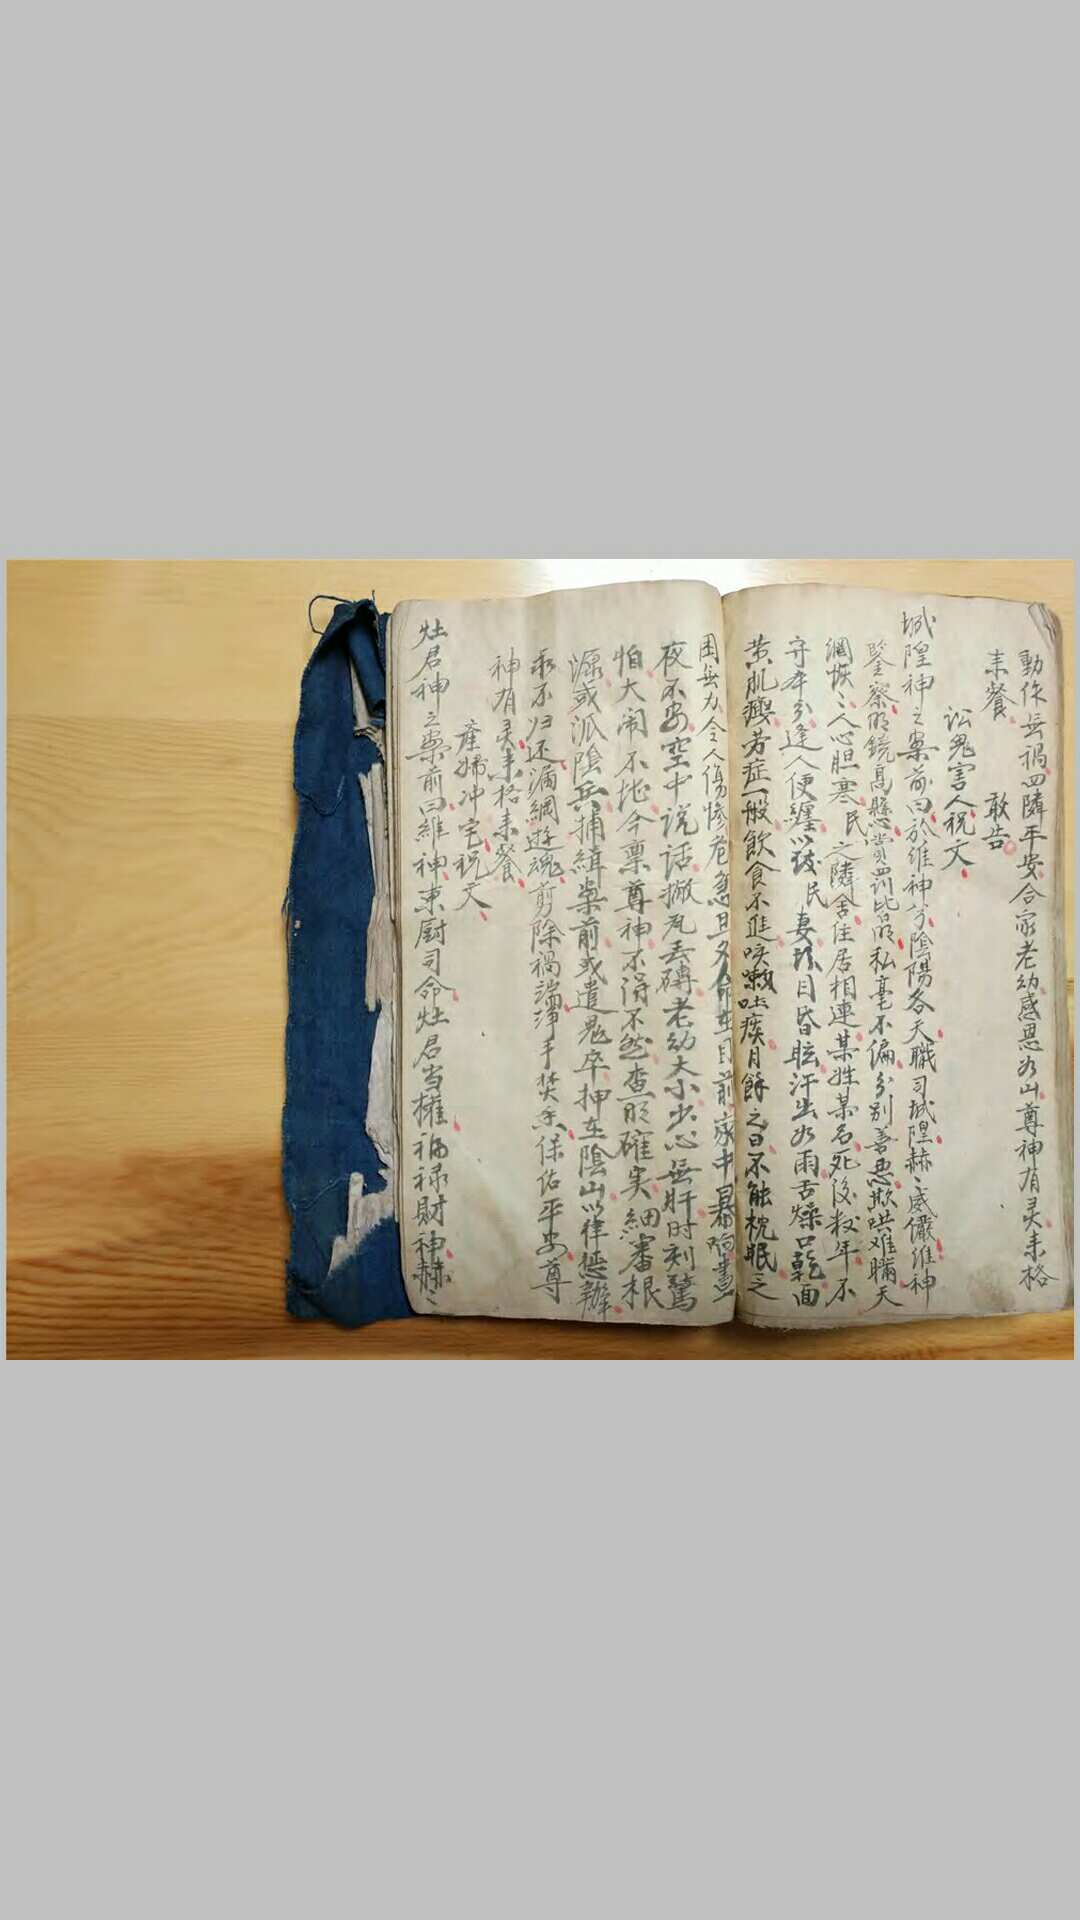 動作無禍四隣平安合家老幼感恩如山尊神有灵来格
来餐 敢告
訟鬼害人祝文
城隍神之案前曰於維神兮陰陽各天職司城隍赫〻威儼維神
鑒察明鏡高懸賞罰比昂私毫不偏分别善恶欺哄难瞞天
網恢〻人心胆寒民之隣舍住居相連某姓某名死後数年不
守本分逢人便纏以致民妻 目昏眩汗出如雨舌燥口乾面
黄肌瘦劳症一般飲食不進咳嗽吐痰月餘之日不触枕眠之
困無力令人傷惨危急旦夕命在目前家中暴响晝
夜不安空中説話撇瓦丢磚老幼大小少心無肝时刻驚
怕大闹不堪今禀尊神不得不然查明確実細審根
源或派陰兵捕緝案前或遣鬼卒押在陰山以律懲辦
永不归还漏網遊魂剪除禍端淨手焚香保佑平安尊
神有灵来格来餐
產婦冲宅祝文
灶君神之案前曰維神東厨司命灶君当權福禄財神赫〻